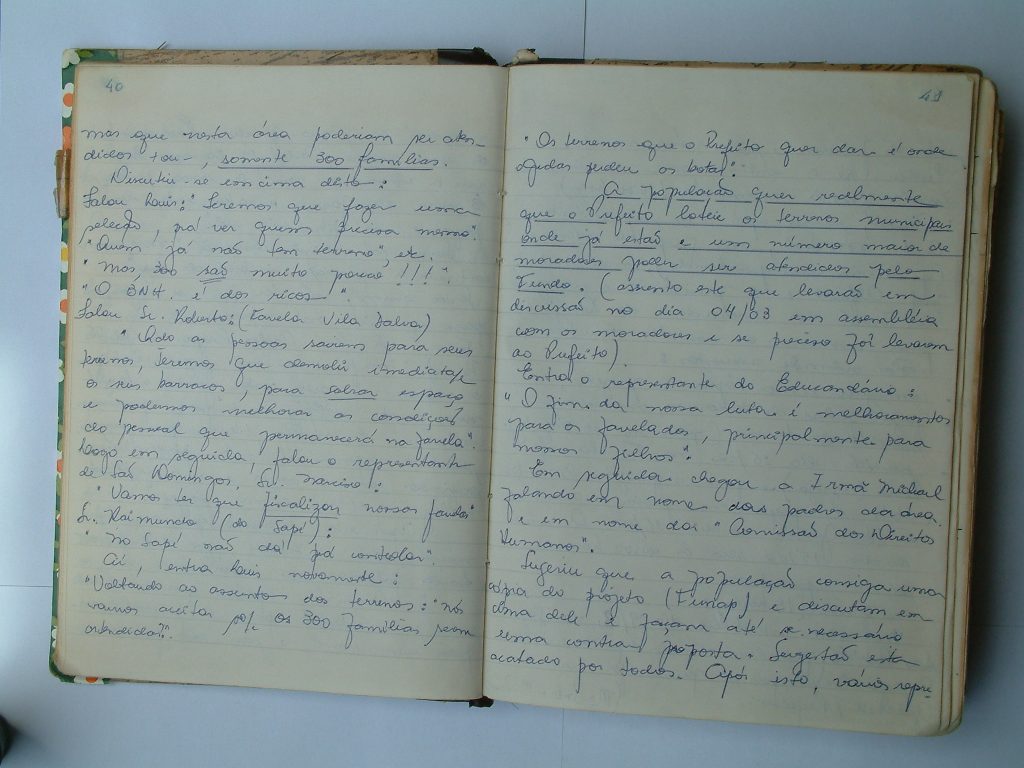 40
mas que nesta área poderiam ser aten-
didos tau-, somente 300 famílias.
Discutiu-se em cima disto:
Falou Luis: "Teremos que fazer uma
seleção, prá ver quem precisa mesmo".
"Quem já não tem terreno", etc.
"mas, 300 são muito pouco !!!"
"O BNH. é dos ricos".
Falou Sr. Roberto: (Favela Vila Dalva)
as pessoas sairem para seus
terrenos, teremos que demolir imediata/e
o seus barracos, para sobrar espaço
e podermos melhorar as condições
do pessoal que permanecerá na favela".
Logo em seguida, falou o representante
de São Domingos, Sr. Narciso:
"Vamos ter que fiscalizar nossas favelas"
Sr. Raimundo (do Sapé):
"No Sapé não dá prá controlar".
Aí, entra Luis novamente:
"Voltando ao assunto dos terrenos: "nós
vamos aceitar só/e os 300 famílias serem
atendidas?".
41
"Os terrenos que o Prefeito quer dar é onde
Judas perdeu as botas".
A população quer realmente
que o Prefeito loteie os terrenos municipais
onde já estão e um número maior de
moradores poder ser atendidos pelo
Fundo. (assunto este que levarão em
discussão no dia 04/03 em assembléia
com os moradores e se preciso for levarem
ao Prefeito).
Entra o representante do Educandário:
"O fim da nossa luta é melhoramentos
para os favelados, principalmente para
nossos filhos".
Em seguida chegou a Irmã Michael
falando em nome dos padres da área
e em nome da "Comissão dos Direitos
Humanos".
Sugeriu que a população consiga uma
cópia do projeto (Funap) e discutam em
cima dele e façam até se necessário
uma contra proposta. Sugestão esta
acatado por todos. Após isto, vários repre-